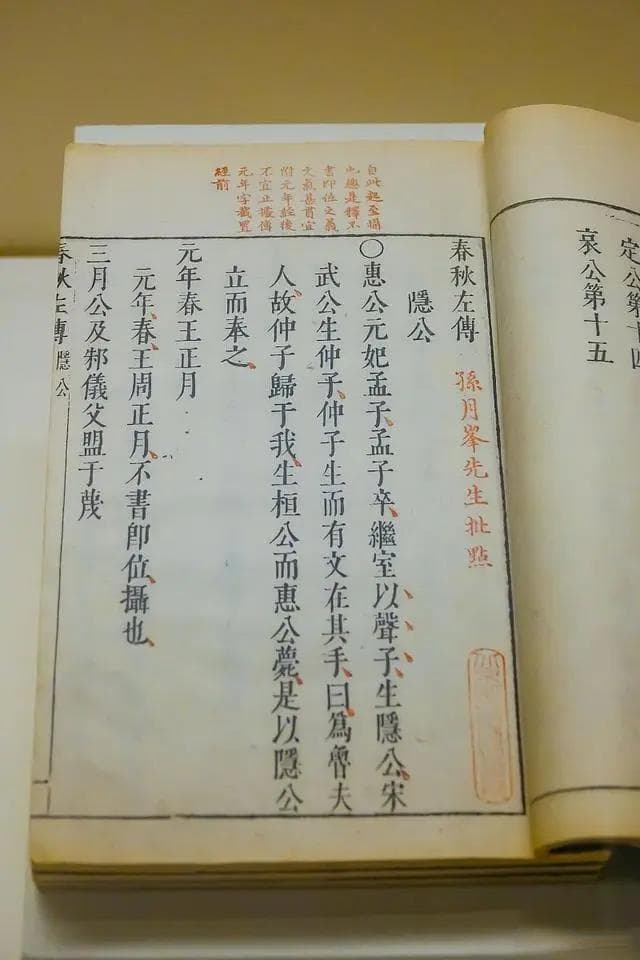 定公第十四
哀公第十五
自此起至攝
也總是釋不
書卽位之義
文氣甚貫宜
附元年經後
不宜止據傳
元年字截置
經前
春秋左傳 孫月峯先生批點
隱公
○惠公元妃孟子孟子卒繼室以聲子生隱公宋
武公生仲子仲子生而有文在其手曰爲魯夫
人故仲子歸于我生桓公而惠公薨是以隱公
立而奉之
元年春王正月
元年春王周正月不書卽位攝也
三月公及邾儀父盟于蔑
春秋左傳 隱公